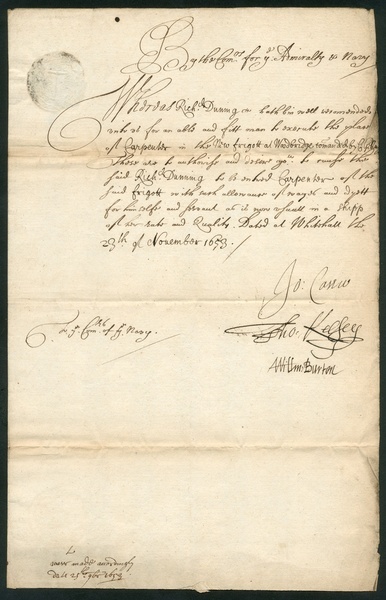 By the Com:rs for ye Admiralty & Navy
Whereas Rich:d Dunning hath bin well recommended
unto us for an able and fitt man to execute the place
of Carpenter in the New Frigott at Woodbridge
These are to authorize and desire yo:u to cause the
said Rich:d Dunning to be entred Carpenter of the
said Frigott with such allowance of wages and dyett
for himselfe and servant as is usuall in a shipp
of her rate and Quality. Dated at Whitehall the
23th of November 1653 /
Jo: 
Tho: Kelsey
Willm: Burton
To ye Com:rs of ye Navy.
warr made accordingly
date 25th 9ber 1653